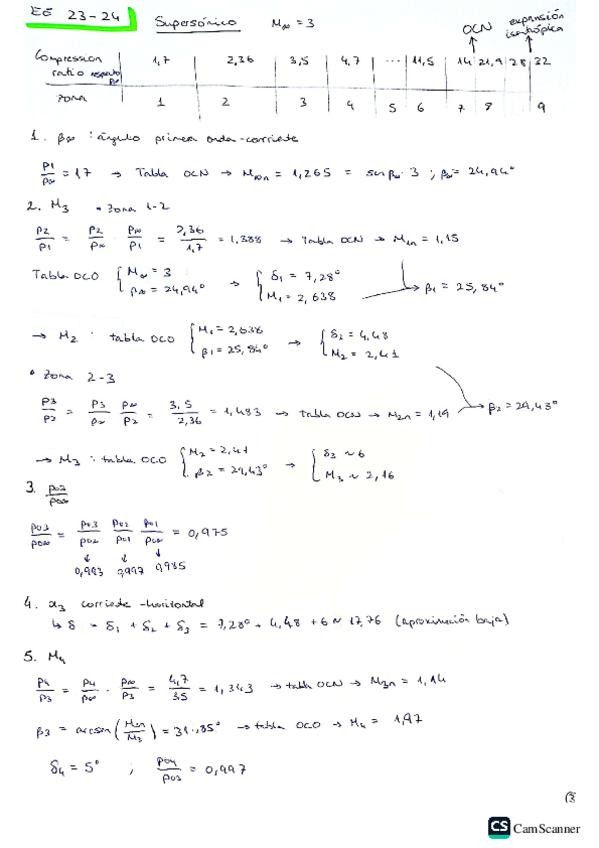 EE 23-24
Supersónico M∞ = 3
OCN expansión isentrópica
Compression ratio respecto p∞ 1,7 2,36 3,5 4,7 ... 11,5 14 21,9 28 32
ZONA 1 2 3 4 5 6 7 8 9
1. β∞ : ángulo primera onda-corriente
p1/p∞ = 1,7 → Tabla OCN → M∞n = 1,265 = sen β∞ · 3 ; β∞ = 24,94°
2. M3 • Zona 1-2
p2/p1 = p2/p∞ · p∞/p1 = 2,36/1,7 = 1,388 → tabla OCN → M1n = 1,15
Tabla OCO { M∞ = 3 β∞ = 24,94° → { δ1 = 7,28° M1 = 2,638 → β1 = 25,84°
→ M2 : tabla OCO { M1 = 2,638 β1 = 25,84° → { δ2 = 4,48 M2 = 2,41
• Zona 2-3
p3/p2 = p3/p∞ p∞/p2 = 3,5/2,36 = 1,483 → tabla OCN → M2n = 1,19 → β2 = 29,43°
→ M3 : tabla OCO { M2 = 2,41 β2 = 29,43° → { δ3 ~ 6 M3 ~ 2,16
3.
p03/p0∞ = p03/p02 p02/p01 p01/p0∞ = 0,975
0,993 0,997 0,985
4. α3 corriente-horizontal
↳ δ = δ1 + δ2 + δ3 = 7,28° + 4,48 + 6 ~ 17,76 (aproximación baja)
5. M4
p4/p3 = p4/p∞ · p∞/p3 = 4,7/3,5 = 1,343 → tabla OCN → M3n = 1,14
β3 = arcsen (M3n/M3) = 31,85° → tabla OCO → M4 = 1,97
δ4 = 5° ; p04/p03 = 0,997
CS CamScanner